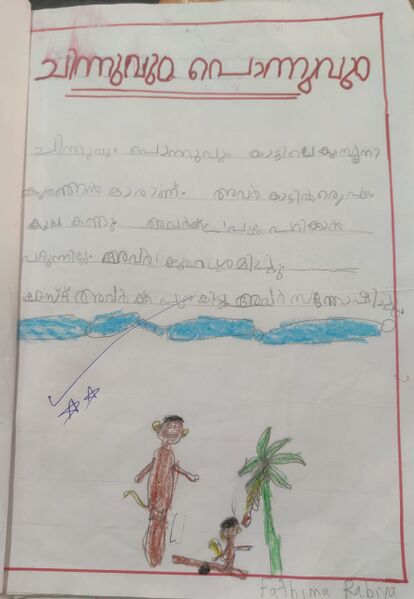 ചിന്നുവും പൊന്നുവും
ചിന്നുവും പൊന്നുവും കാട്ടിലെ
കുരങ്ങൻ മാരാണ്. അവർ കാട്ടിൽ ഒരു പഴം
കുല കണ്ടു അവർക്ക് പഴം പറിക്കാൻ
പറ്റുന്നില്ല അവർ കുറേ ശ്രമിച്ചു
അവർ ക്ക് പഴം കിട്ടി അവർ സന്തോഷിച്ചു
Fathima Rabiya